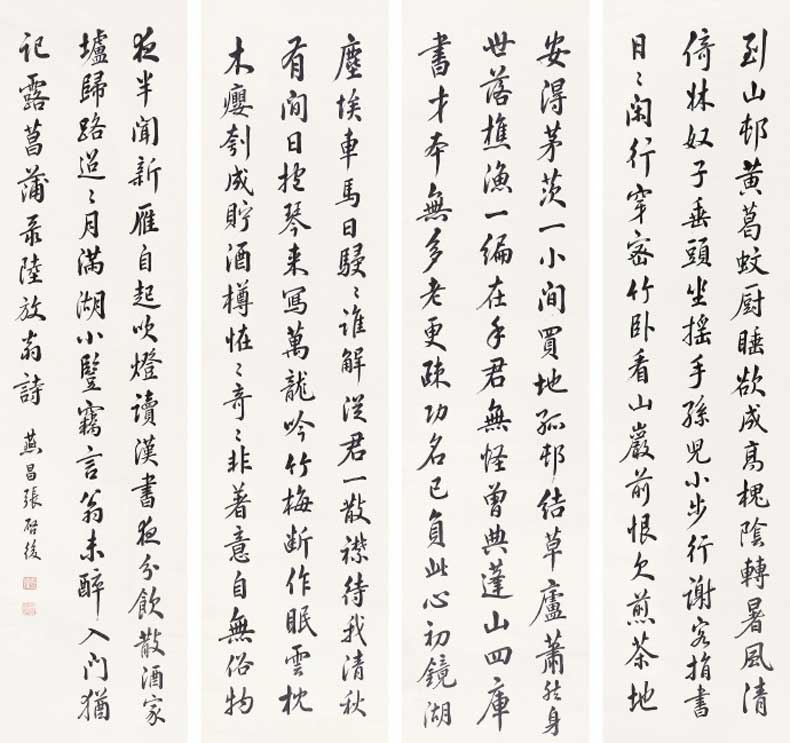 到山邨黄葛蚊厨睡欲成高槐陰轉暑風清
倚牀奴子垂頭坐搖手孫兒小步行謝客捐書
日〻閑行穿密竹卧看山巖前恨欠煎茶地
安得茅茨一小間買地孤邨結草廬蕭然身
世落樵漁一編在手君無怪曾典蓬山四庫
書才本無多老更疎功名已負此心初鏡湖
塵埃車馬日駸〻誰解從君一散襟待我清秋
有閒日抱琴来寫萬龍吟竹梅斷作眠雲枕
木癭刳成貯酒樽怪〻奇〻非著意自無俗物
夜半聞新雁自起吹燈讀漢書夜分飲散酒家
壚歸路迢〻月滿湖小豎竊言翁未醉入門猶
記露菖蒲录陸放翁詩
燕昌張啓後